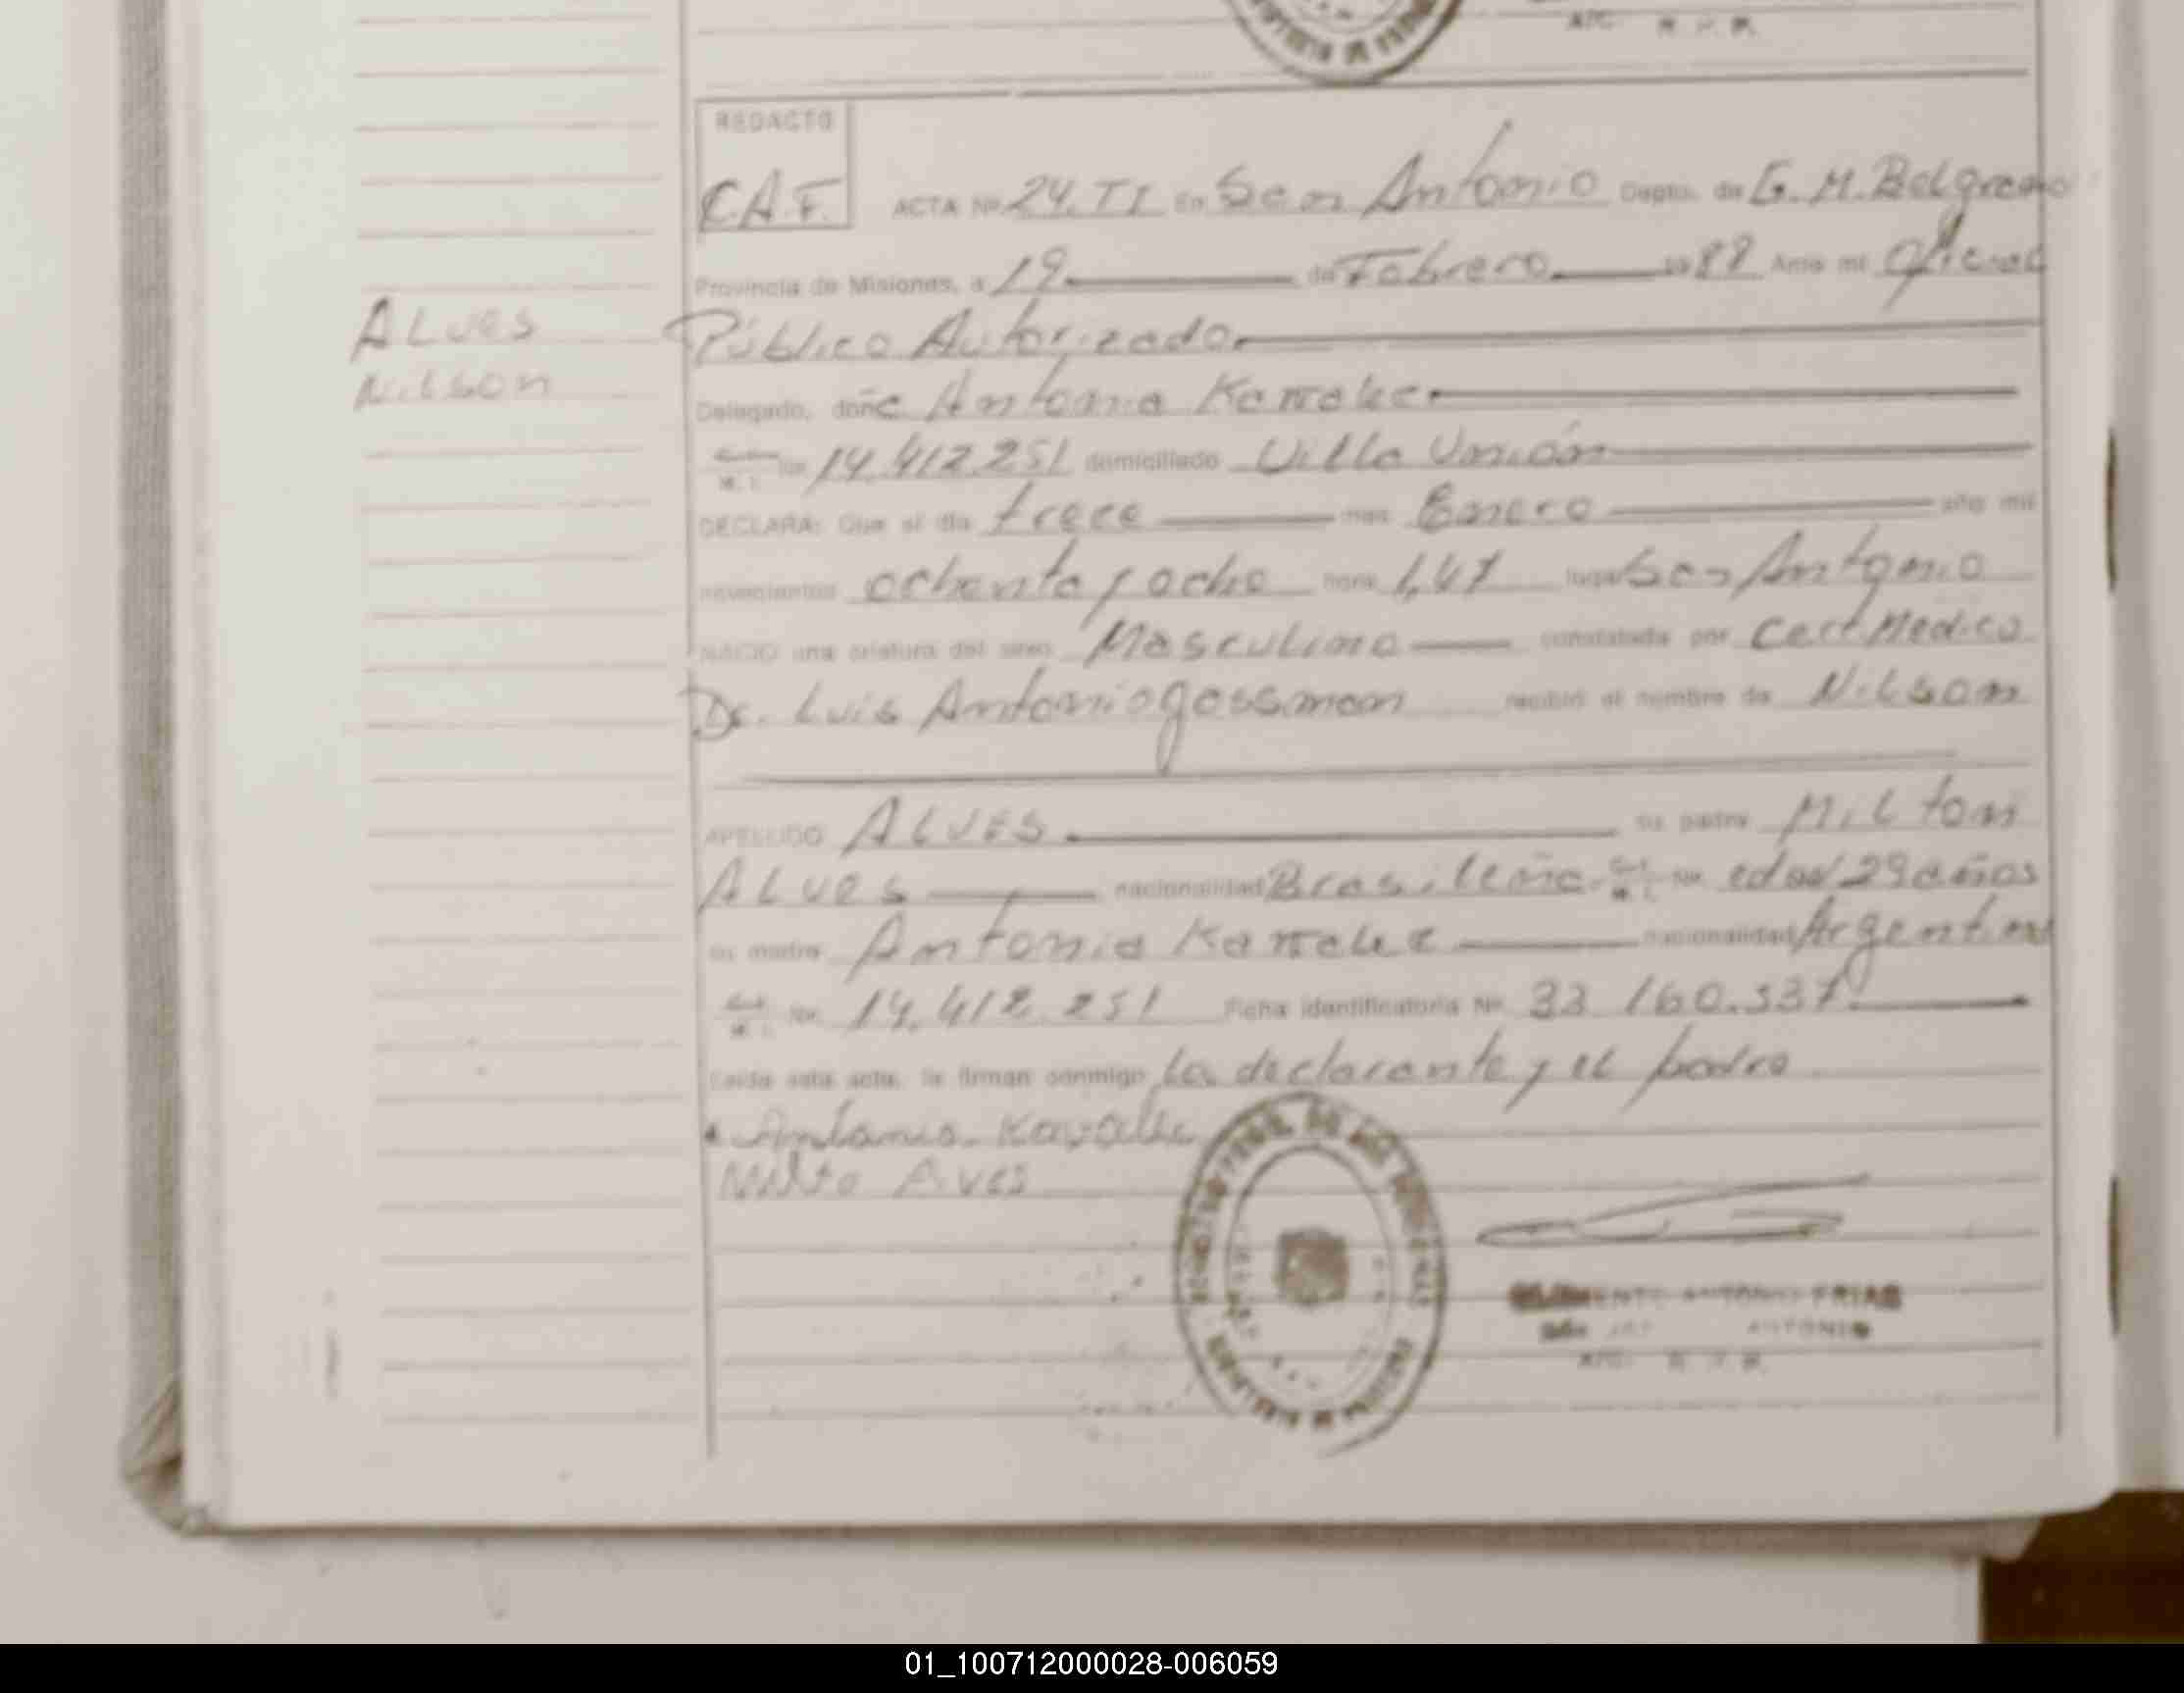 REDACTO
C.A.F. ACTA Nº 24. TI En San Antonio Depto. de G. M. Belgrano
Provincia de Misiones, a 19 de Febrero 19 88 Ante mi Oficial
Público Autorizado
Delegado, doña Antonia
M. I. Nº 14.412.251 domiciliado Villa Unión
DECLARA: Que el día trece mes Enero año mil
novecientos ochenta y ocho hora lugar San Antonio
NACIO una criatura del sexo Masculino constatada por Cert. Medico
Dr. Luis Antonio gassman recibió el nombre de Nilson
APELLIDO ALVES su padre Milton
ALves nacionalidad Brasileña M. I. Nº edad 29 años
su madre Antonia nacionalidad Argentina
M. I. Nº 14.412.251 Ficha identificatoria Nº 33 160.337
Leída esta acta, la firman conmigo La declarante y el padre
Antonia
Milto Aves
ALves
Nilson
ANTONIO FRIAS
ANTONIO
01_100712000028-006059